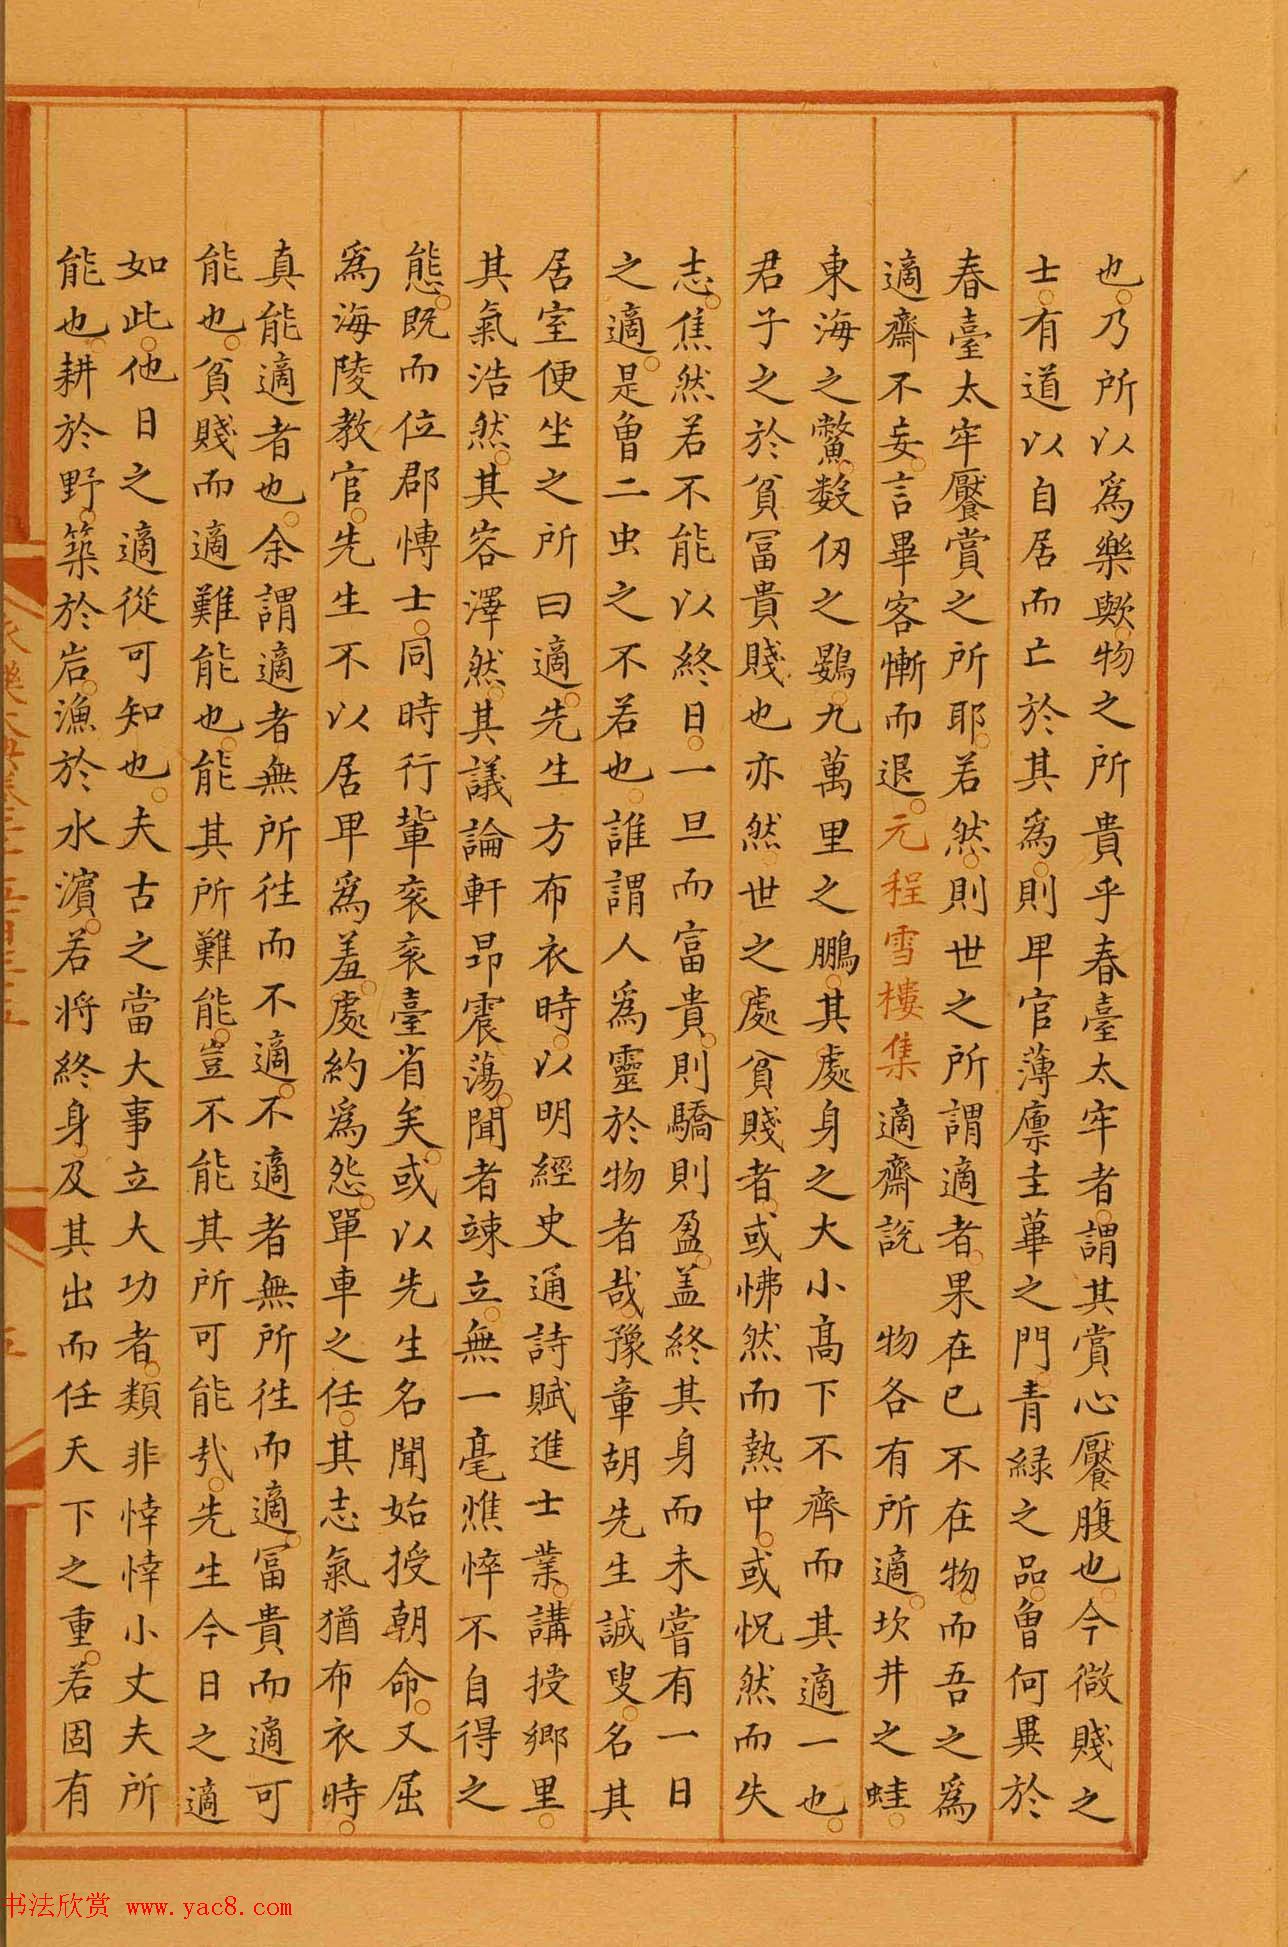 也乃所以爲樂歟物之所貴乎春臺太牢者謂其賞心饜腹也今微賤之
士有道以自居而亡於其爲則卑官薄廪圭蓽之門青綠之品曾何異於
春臺太牢饜賞之所耶若然則世之所謂適者果在已不在物而吾之爲
適齋不妄言畢客慚而退元程雪樓集 適齋說 物各有所適坎井之蛙
東海之鱉數仞之鷃九萬里之鵬其處身之大小高下不齊而其適一也
君子之於貧冨貴賤也亦然世之處貧賤者或怫然而熱中或怳然而失
志焦然若不能以終日一旦而富貴則驕則盈盖終其身而未嘗有一日
之適是曾二虫之不若也誰謂人爲靈於物者哉豫章胡先生誠叟名其
居室便坐之所曰適先生方布衣時以明經史通詩賦進士業講授鄉里
其氣浩然其容澤然其議論軒昂震蕩聞者竦立無一毫憔悴不自得之
態旣而位郡博士同時行輩衮衮臺省矣或以先生名聞始授朝命又屈
爲海陵教官先生不以居卑爲羞處約爲怨單車之任其志氣猶布衣時
真能適者也余謂適者無所徃而不適不適者無所徃而適冨貴而適可
能也貧賤而適難能也能其所難能豈不能其所可能㢤先生今日之適
如此他日之適從可知也夫古之當大事立大功者類非悻悻小丈夫所
能也耕於野築於岩漁於水濵若将終身及其出而任天下之重若固有
書法欣赏 www.yac8.com